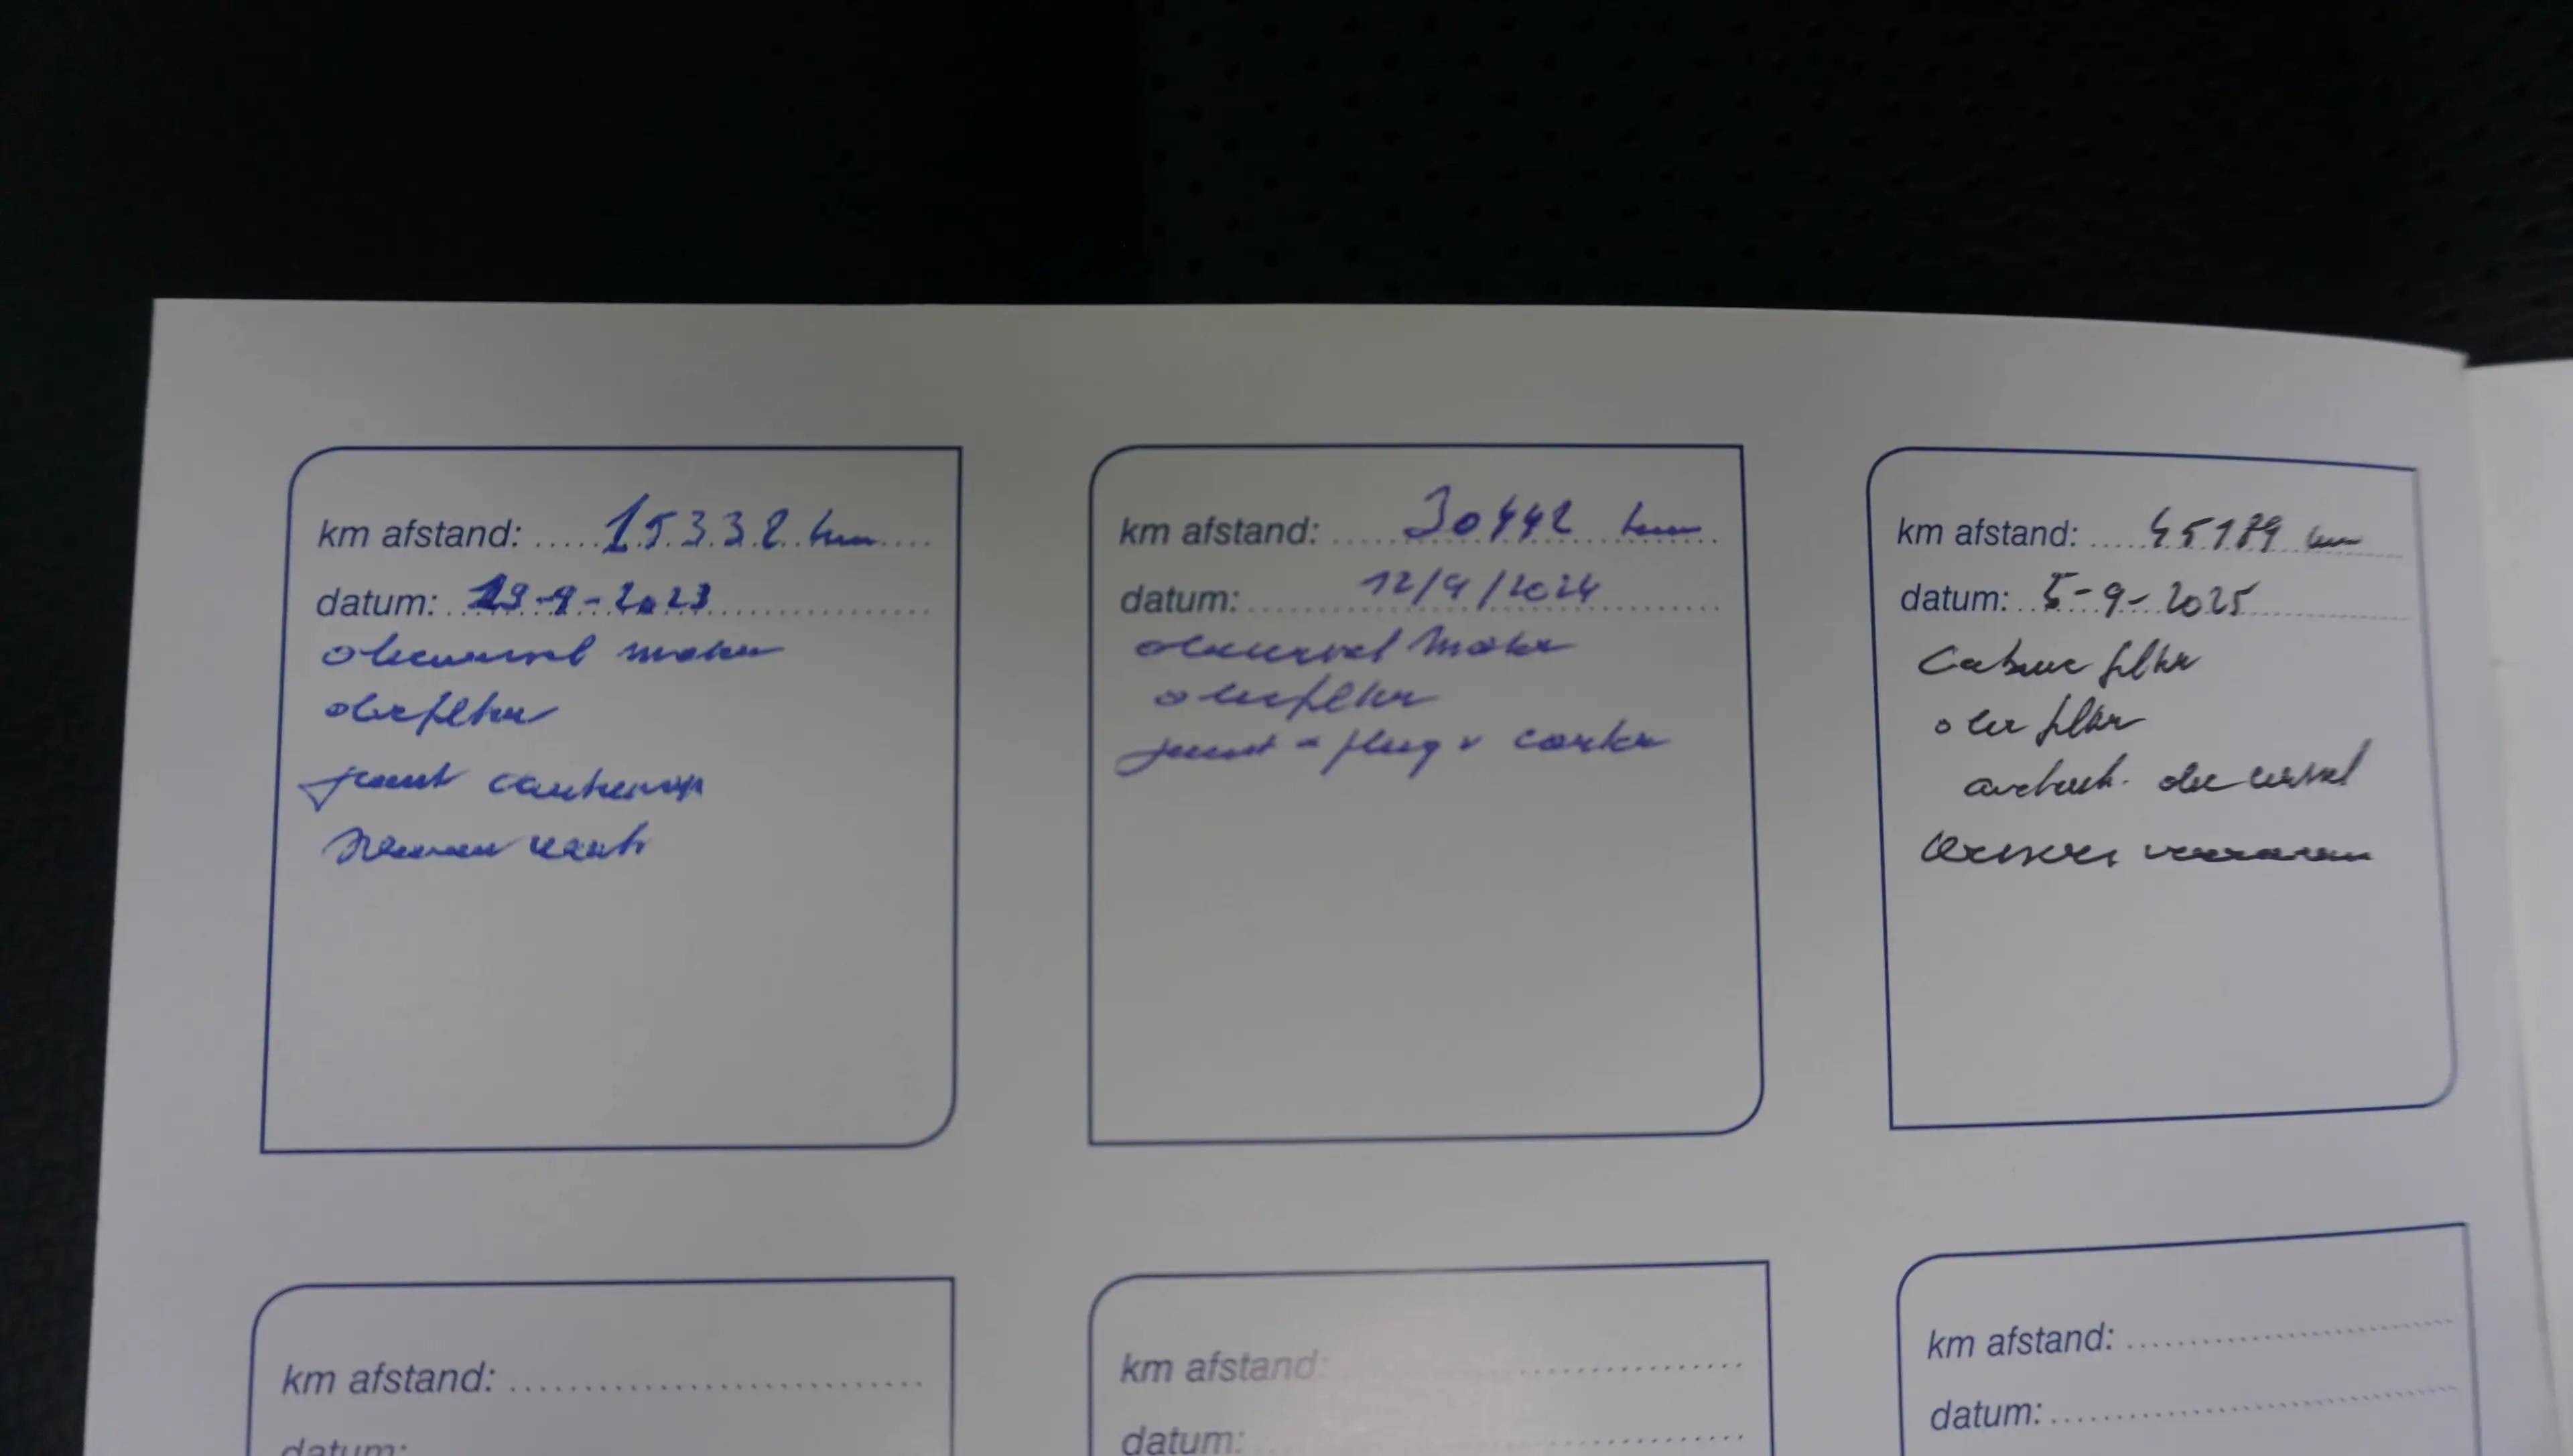 km afstand: 15332 km
datum: 19-9-2023
oliewissel motor
oliefilter
joint carterstop
km afstand: 30442 km
datum: 12/9/2024
oliewissel motor
oliefilter
joint + plug v carter
km afstand: 45189 km
datum: 5-9-2025
Cabine filter
olie filter
olie wissel
km afstand:
datum:
km afstand:
datum:
km afstand:
datum: